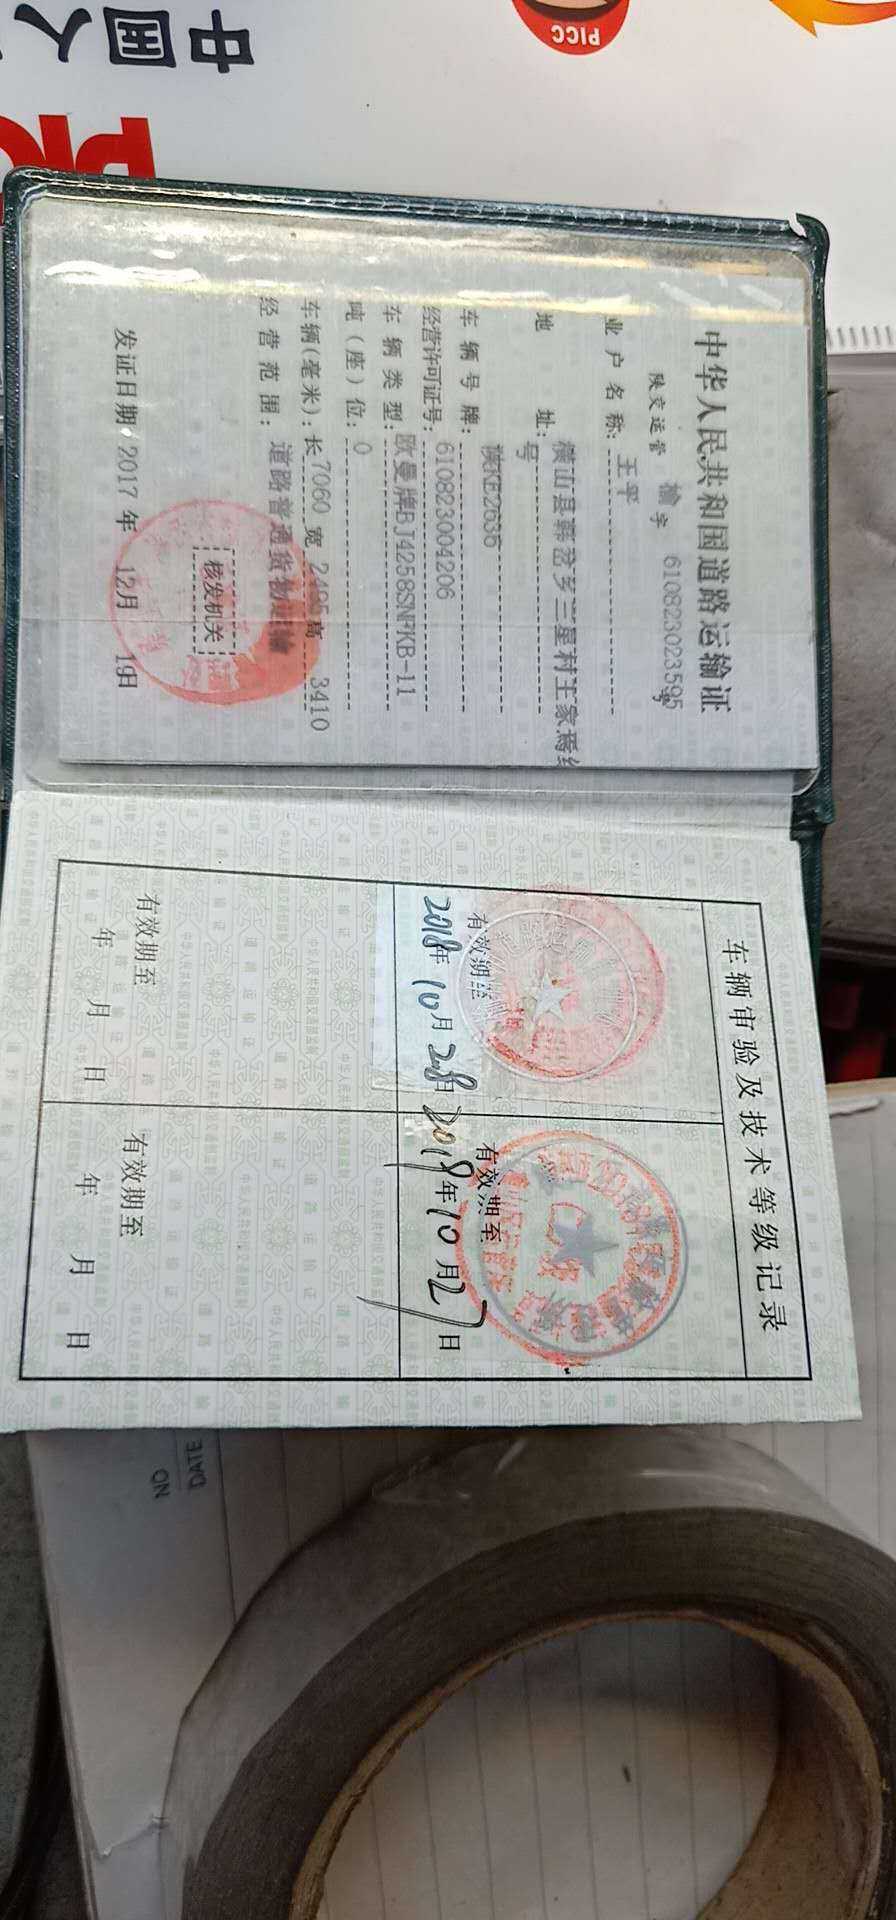 中国人
PICC
中华人民共和国道路运输证
陕交运管 榆 字 610823023595号
业户名称: 王平
地 址: 横山县韩岔乡三皇村王家焉组
号
车辆号牌: 陕KE2635
经营许可证号: 610823004206
车辆类型: 欧曼牌BJ4258SNFKB-11
吨(座)位: 0
车辆(毫米): 长 7060 宽 2495 高 3410
经营范围: 道路普通货物运输
核发机关
发证日期: 2017 年 12月 19日
车辆审验及技术等级记录
有效期至
2018年 10月 28日
有效期至
2019年10月27日
有效期至
年 月 日
有效期至
年 月 日
DATE
NO